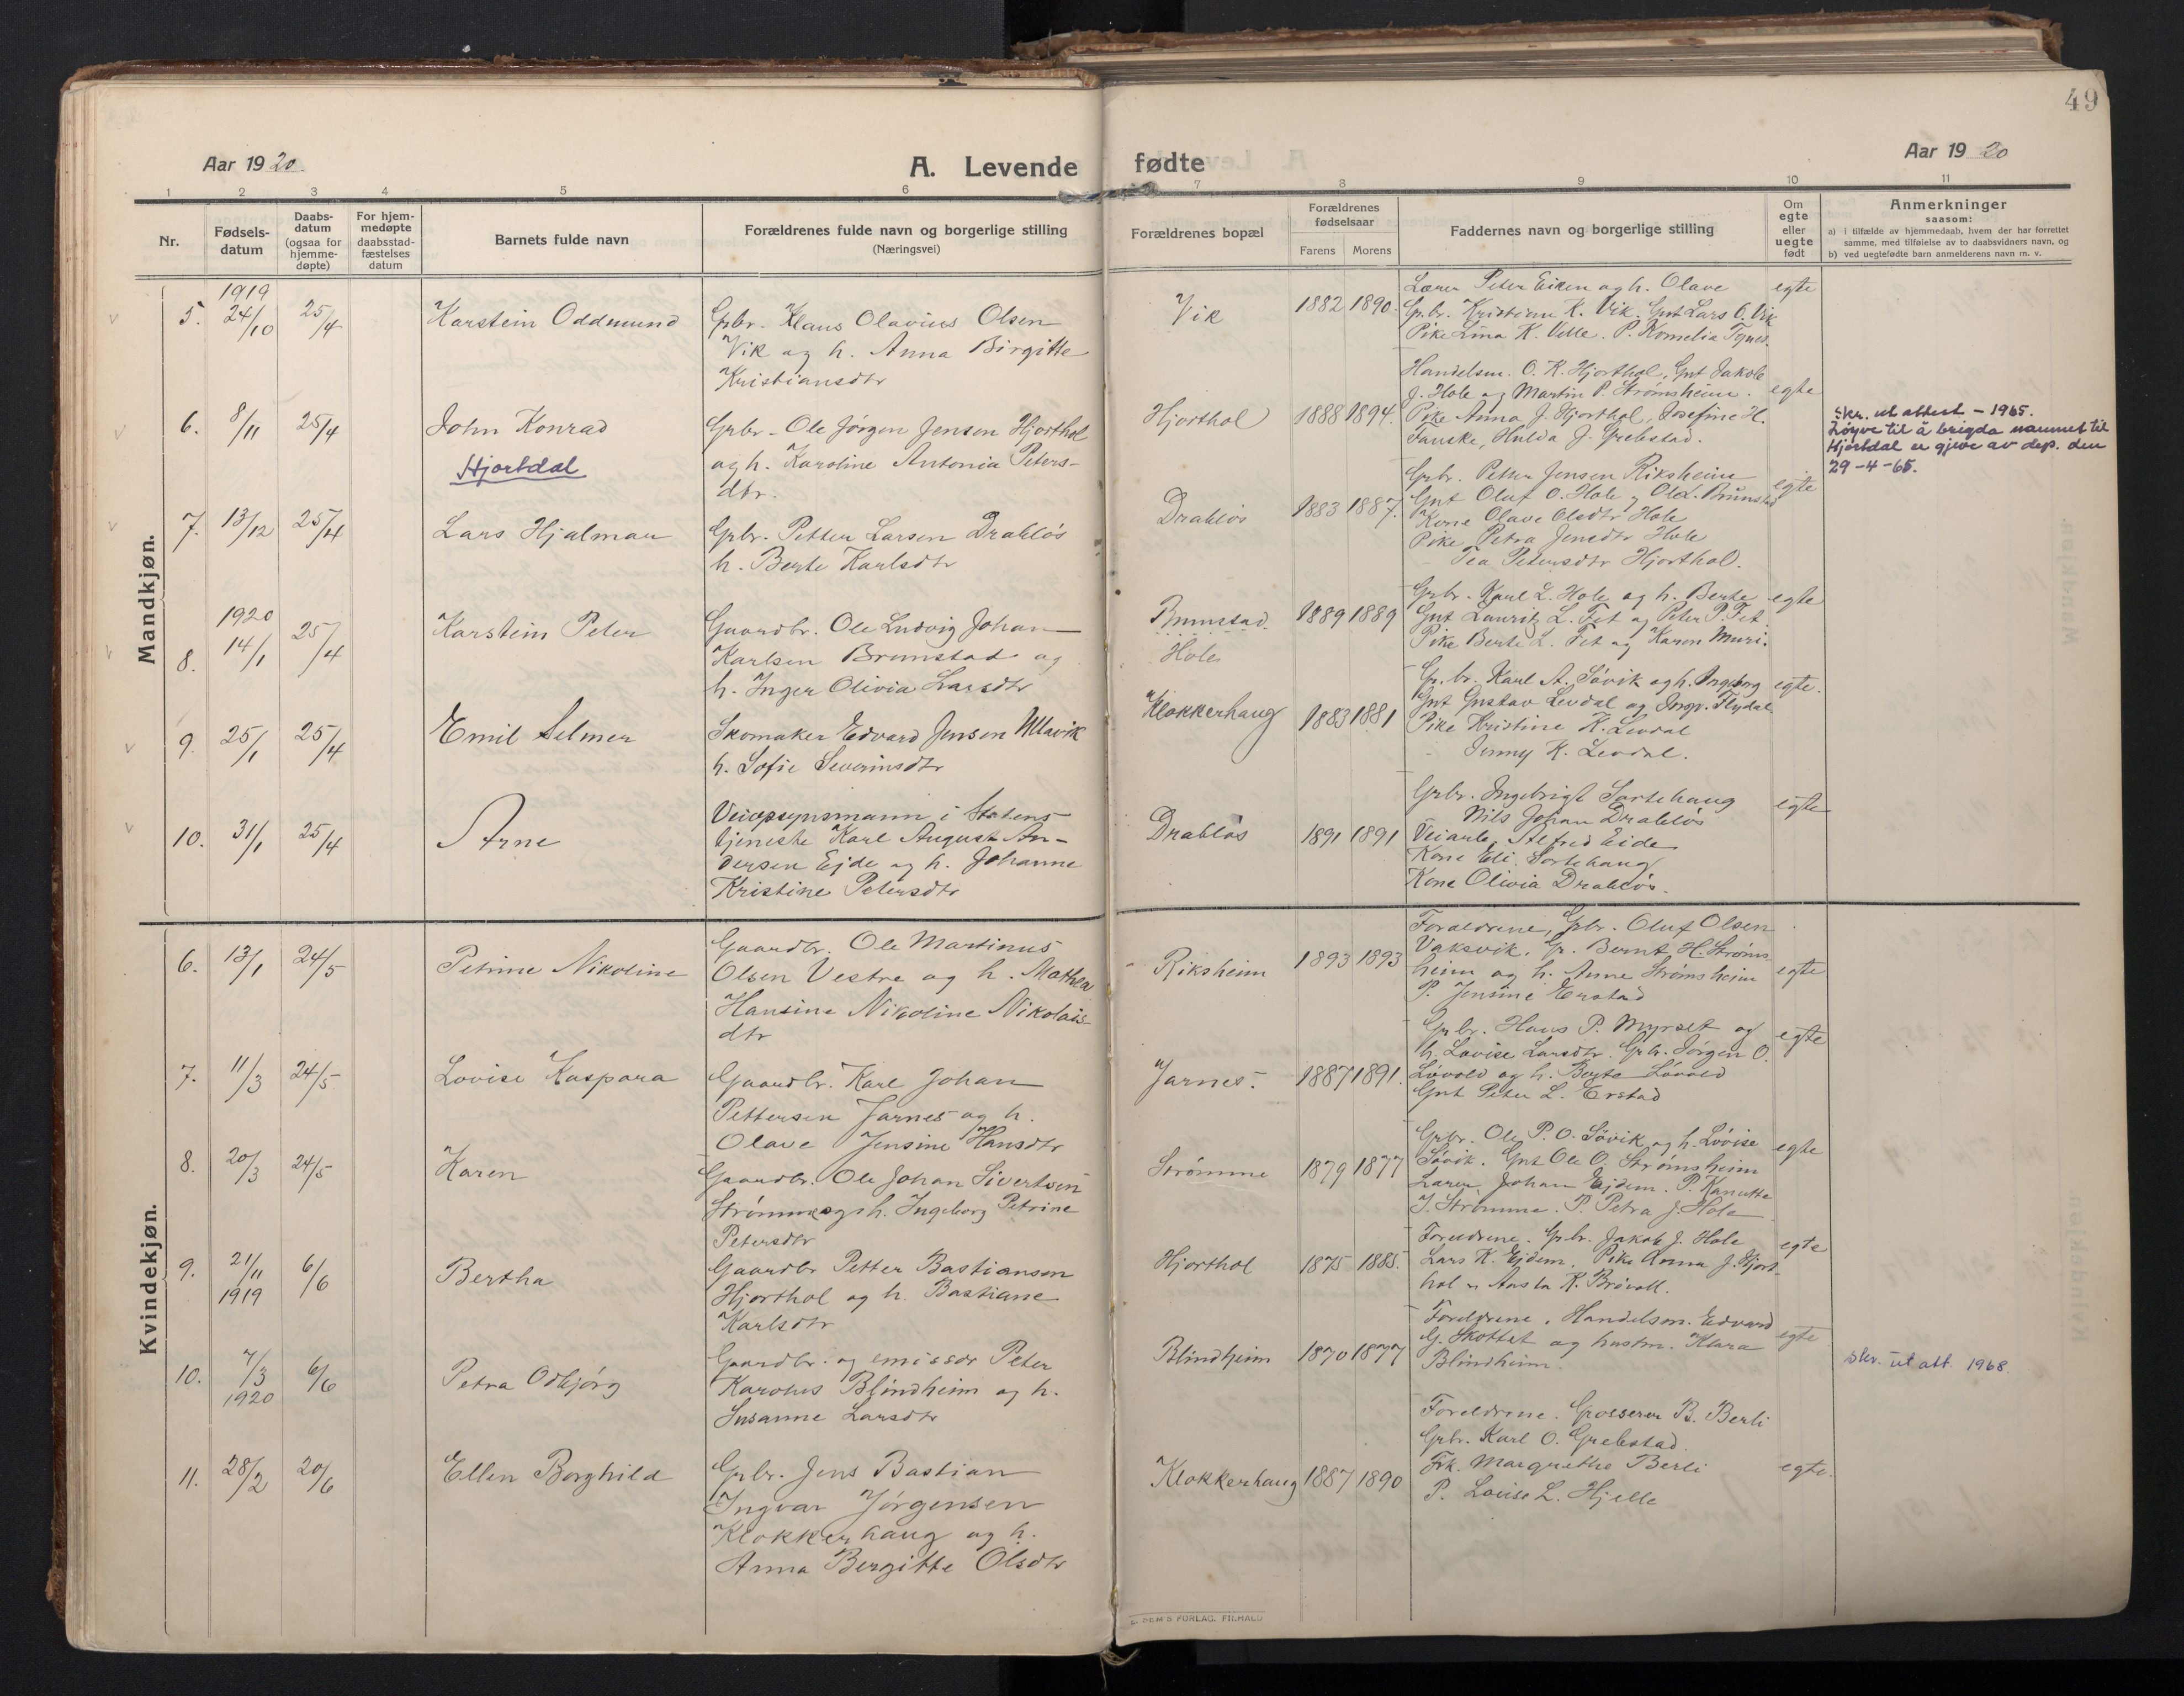 49
Aar 1920.
A. Levende fødte
Aar 1920
1 2 3 4 5 6 7 8 9 10 11
Nr.
Fødsels-
datum
Daabs-
datum
(ogsaa for
hjemme-
døpte)
For hjem-
medøpte
daabsstad-
fæstelses
datum
Barnets fulde navn
Forældrenes fulde navn og borgerlige stilling
(Næringsvei)
Forældrenes bopæl
Forældrenes
fødselsaar
Farens Morens
Faddernes navn og borgerlige stilling
Om
egte
eller
uegte
født
Anmerkninger
saasom:
a) i tilfælde av hjemmedaab, hvem der har forrettet
samme, med tilføielse av to daabsvidners navn, og
b) ved uegtefødte barn anmelderens navn m. v.
Mandkjøn.
5.
1919
24/10
25/4
Karstein Oddmund
Gpbr. Klaus Olavius Olsen
Vik og h. Anna Birgitte
Kristiansdtr
Vik
1882 1890.
Lærer Peter Eiken og h. Olave
Gp.br. Kristian K. Vik. Gut Lars O. Vik
Pike Lina K. Velle. P. Kornelia Tynes.
egte
6.
8/11
25/4
John Konrad
Hjortdal
Grbr. Ole Jørgen Jensen Hjorthol
og h. Karoline Antonia Peters-
dtr.
Hjorthol
1888 1894.
Handelsm. O. K. Hjorthol, Gut Jakob
J. Hole og Martin P. Strømsheim.
Pike Anna J. Hjorthol, Josefine H.
Tauske, Hulda J. Grebstad.
egte
Skr. ut attest - 1965.
Løyve til å brigda namnet til
Hjortdal er gjeve av dep. den
29-4-65.
7.
13/12
25/4
Lars Hjalmar
Grbr. Petter Larsen Drabløs
h. Berte Karlsdtr
Drabløs
1883 1887.
Grbr. Petter Jensen Riksheim
Gut Oluf O. Hole og Ole L. Brunstad
Kone Olave Olsdtr Hole
Pike Petra Jensdtr Hole
- Tea Petersdtr Hjorthol.
egte
8.
1920
14/1
25/4
Karstein Peter
Gaardbr. Ole Ludvig Johan
Karlsen Brunstad og
h. Inger Olivia Larsdtr
Brunstad.
Hole
1889 1889
Grbr. Karl L. Hole og h. Berte
Gut Lauritz L. Fet og Peter P. Fet.
Pike Berte L. Fet og Karen Muri.
egte
9.
25/1
25/4
Emil Selmer
Skomaker Edvard Jensen Ullavik
h. Sofie Severinsdtr
Klokkerhaug
1883 1881
Gp.br. Karl A. Søvik og h. Ingeborg
Gut Gustav Levdal og Ingv. Flydal.
Pike Kristine K. Levdal
- Jenny K. Levdal.
egte.
10.
31/1
25/4
Arne
Veiopsynsmann i Statens
tjeneste Karl August An-
dersen Ejde og h. Johanne
Kristine Petersdtr
Drabløs
1891 1891
Grbr. Ingebrigt Sortehaug
Nils Johan Drabløs
Veiarb. Alfred Eide
Kone Eli Sortehaug
Kone Olivia Drabløs.
egte
Kvindekjøn.
6.
13/1
24/5
Petrine Nikoline
Gaardbr. Ole Martinus
Olsen Vestre og h. Mathea
Hansine Nikoline Nikolais-
dtr
Riksheim
1893 1893
Foreldrene, Grbr. Oluf Olsen
Vaksvik. Gr. Bernt H. Strøms-
heim og h. Anne Strømsheim
P. Jensine Erstad
egte
7.
11/3
24/5
Lovise Kaspara
Gaardbr. Karl Johan
Pettersen Jarnes og h.
Olave Jensine Hansdtr
Jarnes.
1887 1891.
Grbr. Hans P. Myrset og
h. Lovise Larsdtr. Grbr. Jørgen O.
Løvold og h. Berte Løvold
Gut Peter L. Erstad
egte
8.
20/3
24/5
Karen
Gaardbr. Ole Johan Sivertsen
Strømme og h. Ingeborg Petrine
Petersdtr
Strømme
1879 1877
Grbr. Ole P. O. Søvik og h. Lovise
Søvik. Gut Ole O. Strømsheim
Lærer Johan Ejdem. P. Kanutte
J. Strømme. P. Petra J. Hole
egte
9.
21/11
1919
6/6
Bertha
Gaardbr Petter Bastiansen
Hjorthol og h. Bastiane
Karlsdtr
Hjorthol
1875 1885.
Foreldrene. Grbr. Jakob J. Hole
Lars K. Ejdem. Pike Anna J. Hjort-
hol og Aasta K. Brøvoll.
egte
10.
7/3
1920
6/6
Petra Odbjørg
Gaardbr. og emissær Peter
Karolus Blindheim og h.
Susanne Larsdtr
Blindheim
1870 1877
Foreldrene, Handelsm. Edvard
G. Skottet og hustru Klara
Blindheim.
egte
Skr. ut att. 1968.
11.
28/2
20/6
Ellen Borghild
Grbr. Jens Bastian
Ingvar Jørgensen
Klokkerhaug og h.
Anna Bergitte Olsdtr
Klokkerhaug
1887 1890
Foreldrene. Grosserer B. Berli
Grbr. Karl O. Grebstad.
Frk. Margrethe Berli
P. Lovise L. Hjelle
egte.
SEM'S FORLAG, F.HALD